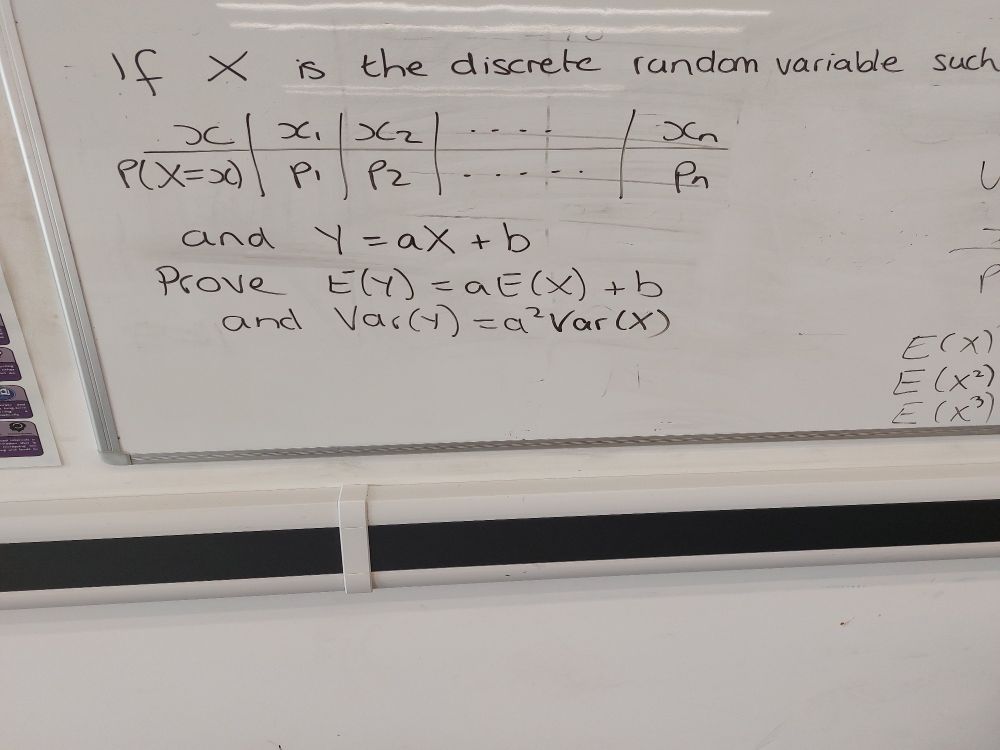 If X is the discrete random variable such
x | x₁ | x₂ | ..... | xₙ
P(X=x) | P₁ | P₂ | ...... | Pₙ
and Y = aX + b
Prove E(Y) = aE(X) + b
and Var(Y) = a²Var(X)
E(X)
E(X²)
E(X³)